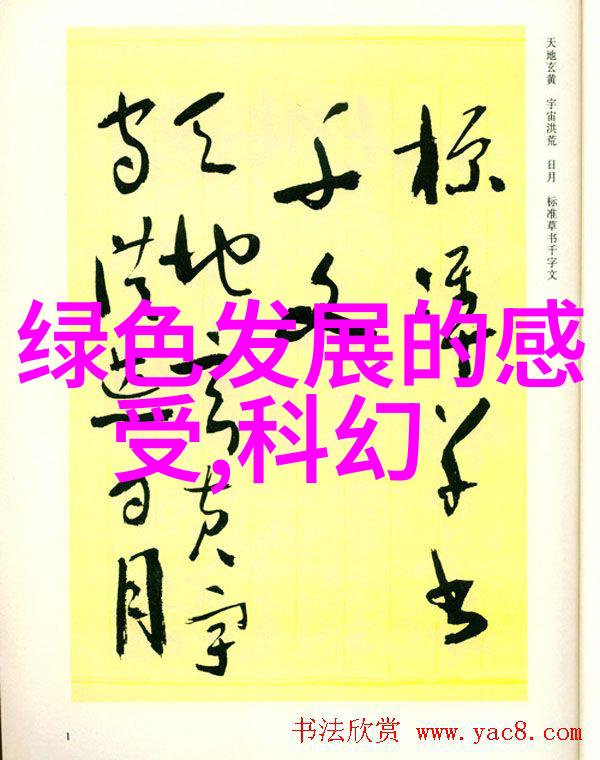 天地玄黄 宇宙洪荒 日月 标准草书千字文
标准草书
千文
天地玄黄宇
宙洪荒日月
绿色发展的感
受,科幻
1
书法欣赏 www.yac8.com